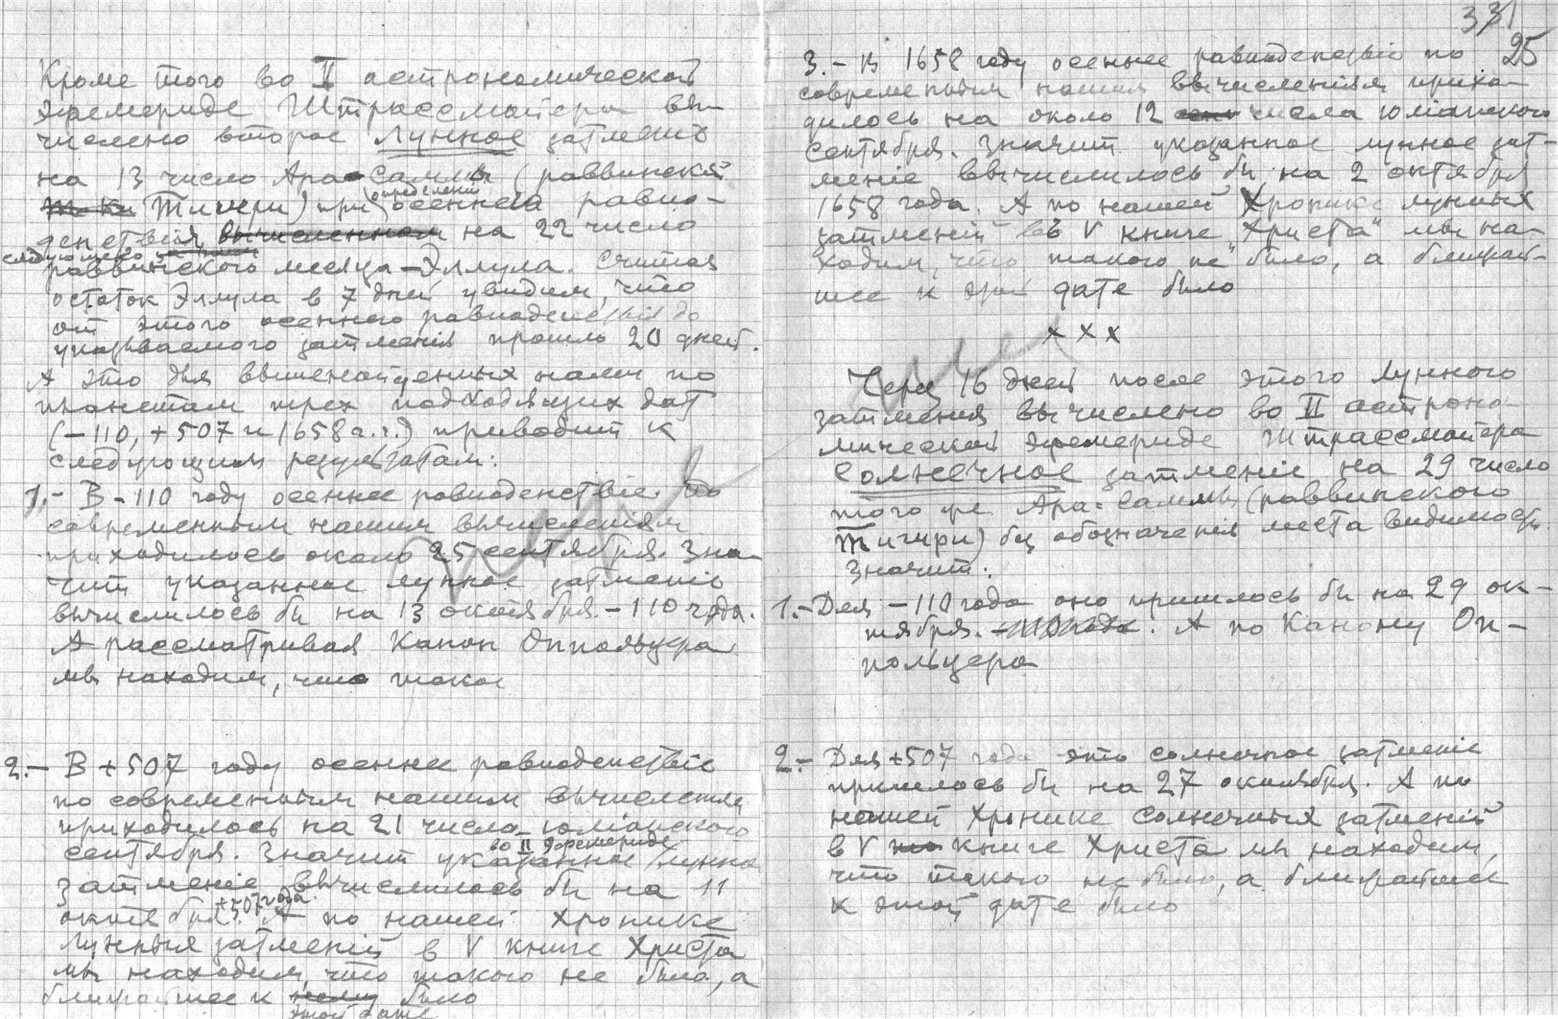 Кроме того во II астрономической
эфемериде Штрассмайера вы-
числено второе лунное затмение
на 13 число Ара-Самны (раввинской
Тишри) при определении осеннего равно-
денствия вычисленном на 22 число
следующего
раввинского месяца-Элула. Считая
остаток Элула в 7 дней увидим, что
от этого осеннего равноденствия до
указываемого затмения прошло 20 дней.
А это для вышенайденных нами по
планетам трех подходящих дат
(-110, +507 и 1658 г.г.) приводит к
следующим результатам:
1.- В -110 году осеннее равноденствие по
современным нашим вычислениям
приходилось около 25 сентября. Зна-
чит указанное лунное затмение
вычислилось бы на 13 октября -110 года.
А рассматривая Канон Оппольцера
мы находим, что такое
2.- В +507 году осеннее равноденствие
по современным нашим вычислениям
приходилось на 21 число юлианского
сентября. Значит указанное во II эфемериде лунное
затмение вычислилось бы на 11
октября +507 года. А по нашей Хронике
лунных затмений в V книге Христа
мы находим, что такого не было, а
ближайшее к нему было
этой дате
331
25
3.- В 1658 году осеннее равноденствие по
современным нашим вычислениям прихо-
дилось на около 12 числа юлианского
сентября. Значит указанное лунное зат-
мение вычислилось бы на 2 октября
1658 года. А по нашей Хронике лунных
затмений в V книге "Христа" мы на-
ходим, что такого не было, а ближай-
шее к этой дате было
х х х
Через 16 дней после этого лунного
затмения вычислено во II астроно-
мической эфемериде Штрассмайера
солнечное затмение на 29 число
того же Ара-Самны (раввинского
Тишри) без обозначения места видимости.
Значит:
1.- Для -110 года оно пришлось бы на 29 ок-
тября. А по Канону Оп-
польцера
2.- Для +507 года это солнечное затмение
пришлось бы на 27 октября. А по
нашей Хронике солнечных затмений
в V книге Христа мы находим,
что такого не было, а ближайшее
к этой дате было